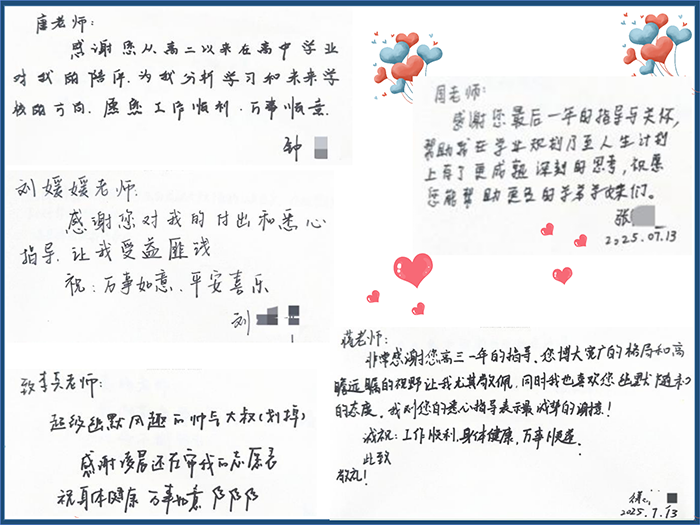 唐老师:
感谢您从高二以来在高中学业
对我的陪伴,为我分析学习和未来学
校的方向。愿您工作顺利,万事顺意.
钟
刘媛媛老师:
感谢您对我的付出和悉心
指导,让我受益匪浅
祝:万事如意、平安喜乐
刘
致李兵老师:
超级幽默风趣的帅气大叔(划掉)
感谢凌晨还在审我的志愿表
祝身体健康 万事如意
周老师:
感谢您最后一年的指导与关怀,
帮助我在学业规划乃至人生计划
上有了更成熟深刻的思考,祝愿
您能帮助更多的学弟学妹们。
张
2025.07.13
蒋老师:
非常感谢您高三一年的指导、您博大宽广的格局和高
瞻远瞩的视野让我尤其敬佩,同时我也喜欢您幽默随和
的态度。我对您的悉心指导表示最诚挚的谢意!
诚祝:工作顺利,身体健康,万事顺遂.
此致
敬礼!
徐
2025.7.13